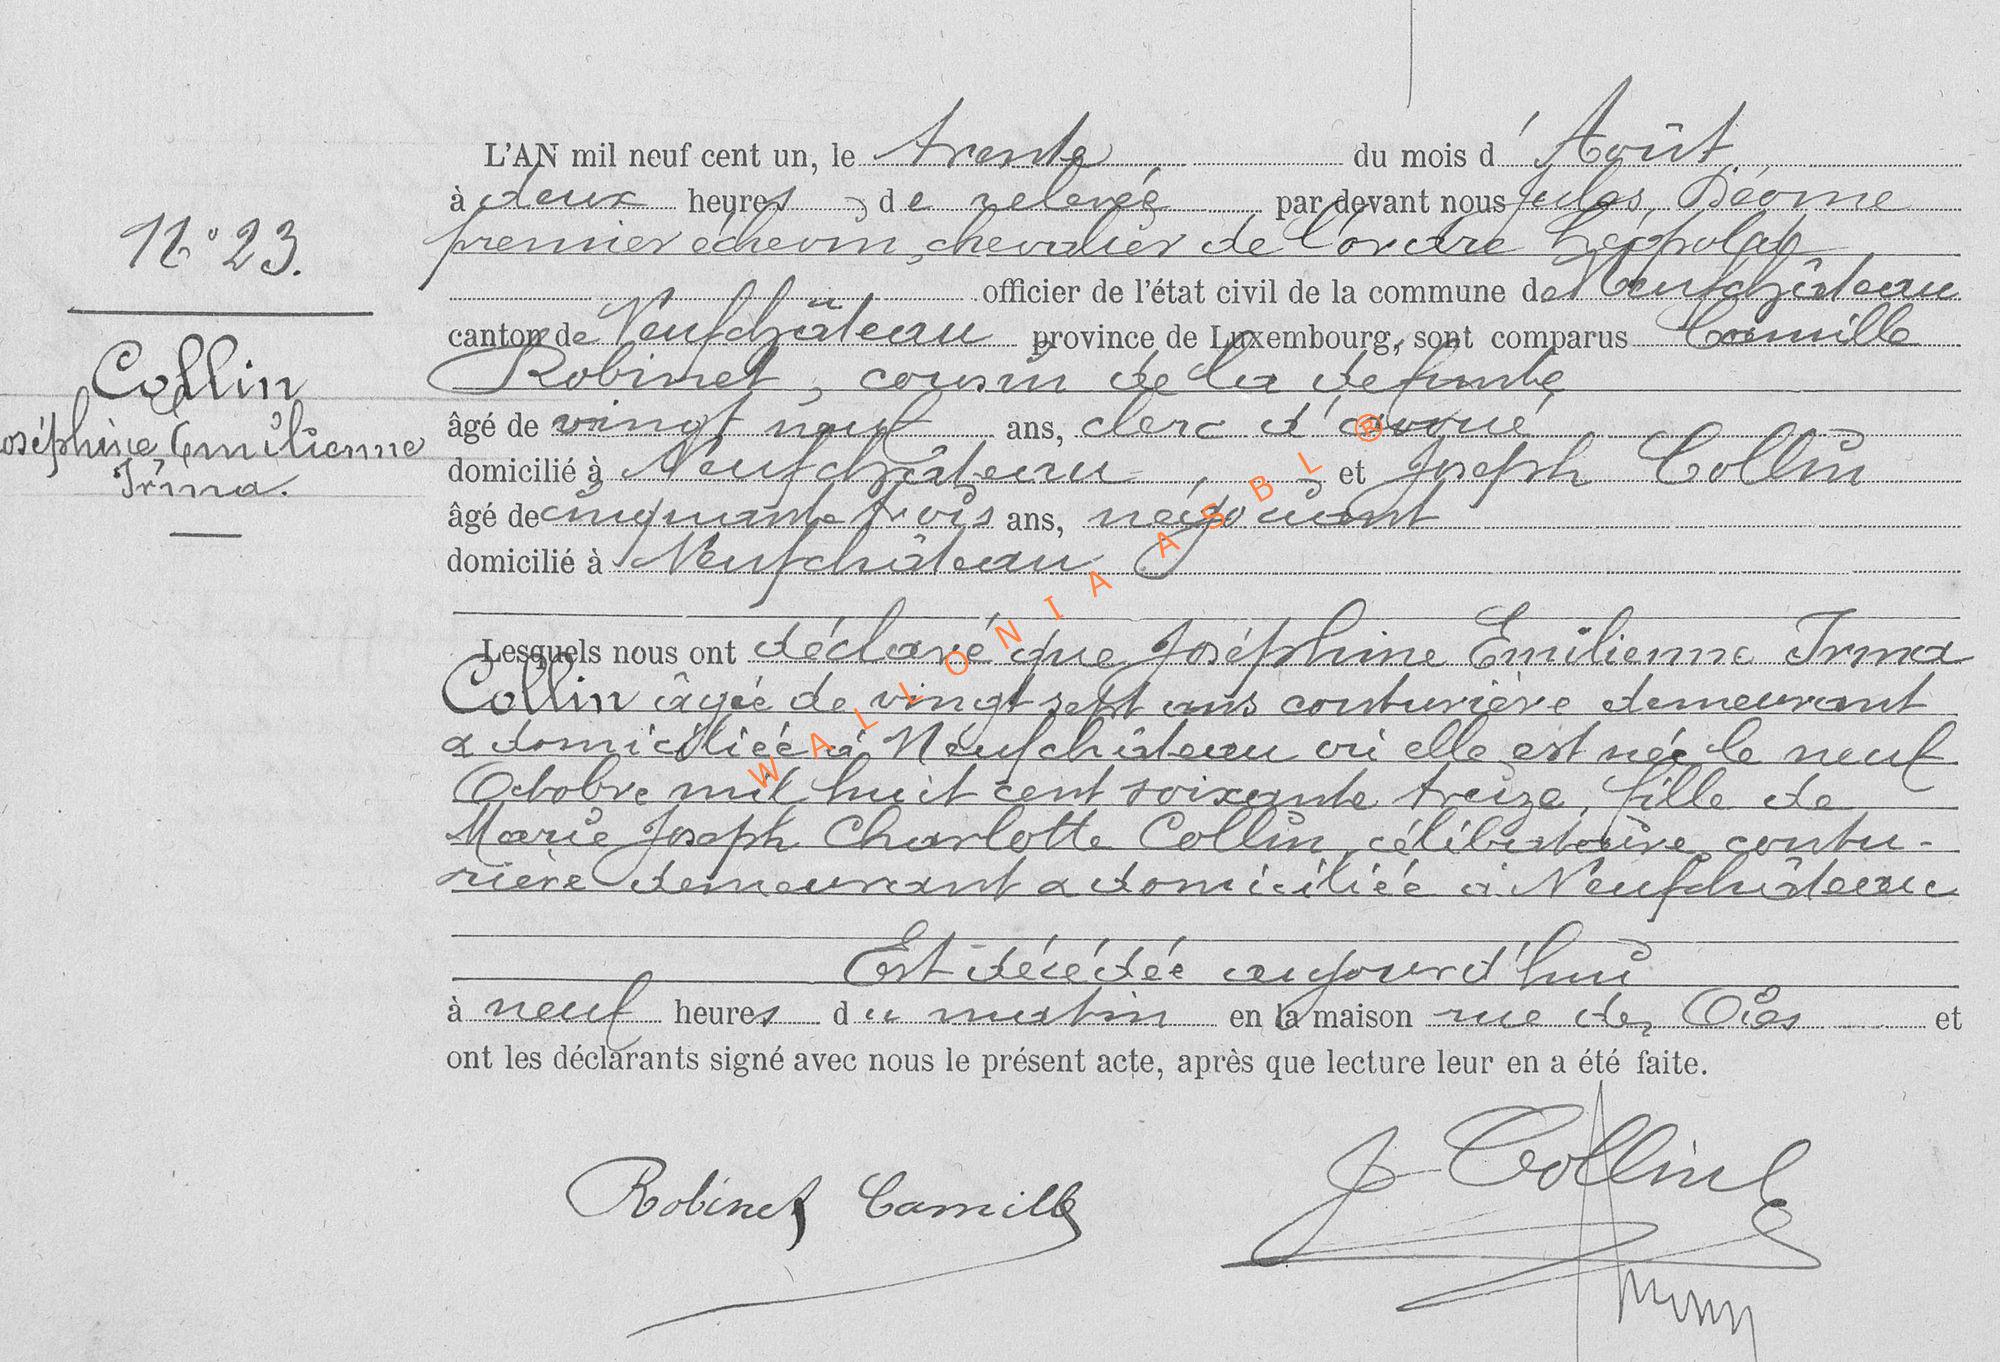 N° 23.
Collin
Joséphine Emilienne
Irma.
L'AN mil neuf cent un, le trente du mois d'Août
à deux heures de relevée par devant nous Jules Déome
premier échevin, chevalier de l'ordre Léopold
officier de l'état civil de la commune de Neufchâteau
canton de Neufchâteau province de Luxembourg, sont comparus Camille
Robinet, cousin de la défunte
âgé de vingt neuf ans, clerc d'avoué
domicilié à Neufchâteau, et Joseph Collin
âgé de cinquante trois ans, négociant
domicilié à Neufchâteau
Lesquels nous ont déclaré que Joséphine Emilienne Irma
Collin âgée de vingt sept ans couturière demeurant
& domiciliée à Neufchâteau où elle est née le neuf
Octobre mil huit cent soixante treize, fille de
Marie Joseph Charlotte Collin, célibataire, coutu-
rière demeurant & domiciliée à Neufchâteau
Est décédée aujourd'hui
à neuf heures du matin en la maison rue des Oies et
ont les déclarants signé avec nous le présent acte, après que lecture leur en a été faite.
Robinet Camille
J Collin
WALLONIA ASBL ®